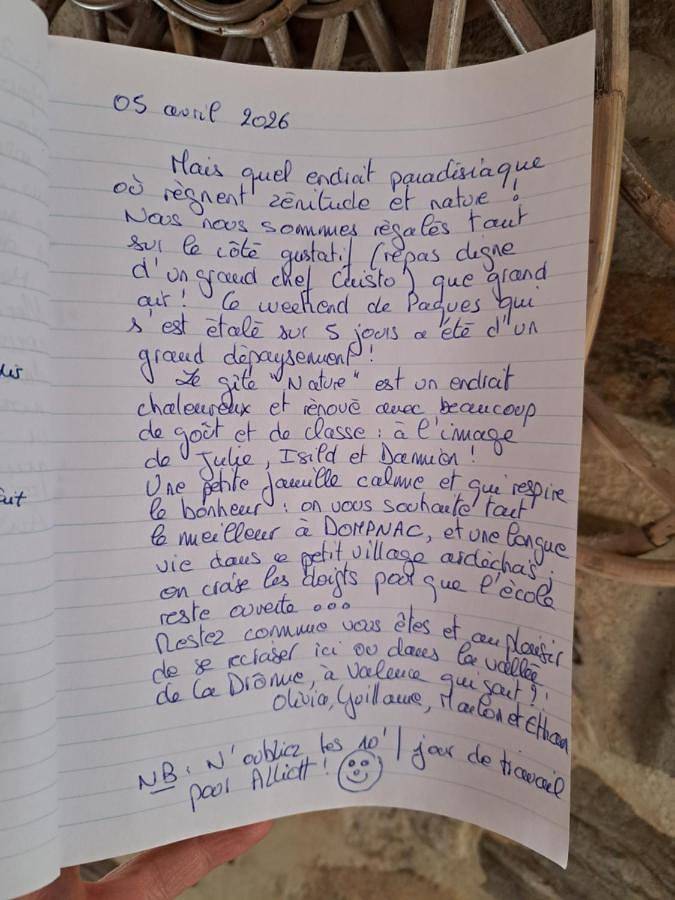 05 avril 2026
Mais quel endroit paradisiaque
où règnent zénitude et nature !
Nous nous sommes régalés tant
sur le côté gustatif (repas digne
d'un grand chef Cuisto) que grand
air ! Ce weekend de Paques qui
s'est étalé sur 5 jours a été d'un
grand dépaysement !
Le gîte "Nature" est un endroit
chaleureux et rénové avec beaucoup
de goût et de classe : à l'image
de Julie, Isild et Damien !
Une petite famille calme et qui respire
le bonheur : on vous souhaite tout
le meilleur à DOMPNAC, et une longue
vie dans ce petit village ardéchois ;
on croise les doigts pour que l'école
reste ouverte ...
Restez comme vous êtes et au plaisir
de se recroiser ici ou dans la vallée
de la Drôme, à Valence qui sait ? !
Olivia, Guillaume, Marlon et Ethan
NB : N'oubliez les 10' / jour de travail
pour Alliott !
dis